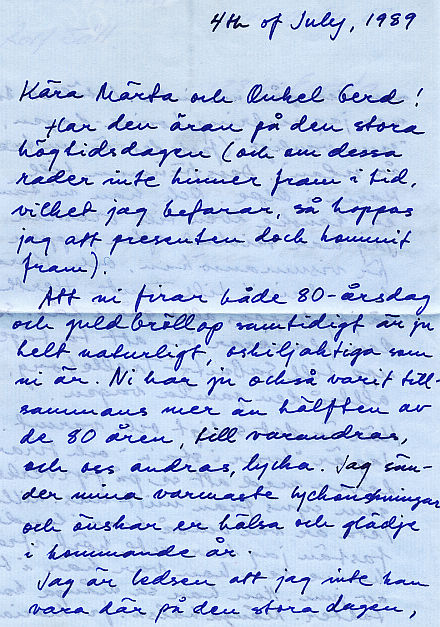 4th of July, 1989
Kära Märta och Onkel Gerd!
Har den äran på den stora
högtidsdagen (och om dessa
rader inte hinner fram i tid,
vilket jag befarar, så hoppas
jag att presenten dock kommit
fram).
Att ni firar både 80-årsdag
och guldbröllop samtidigt är ju
helt naturligt, oskiljaktiga som
ni är. Ni har ju också varit till-
sammans mer än hälften av
de 80 åren, till varandras,
och oss andras, lycka. Jag sän-
der mina varmaste lyckönskningar
och önskar er hälsa och glädje
i kommande år.
Jag är ledsen att jag inte kan
vara där på den stora dagen,